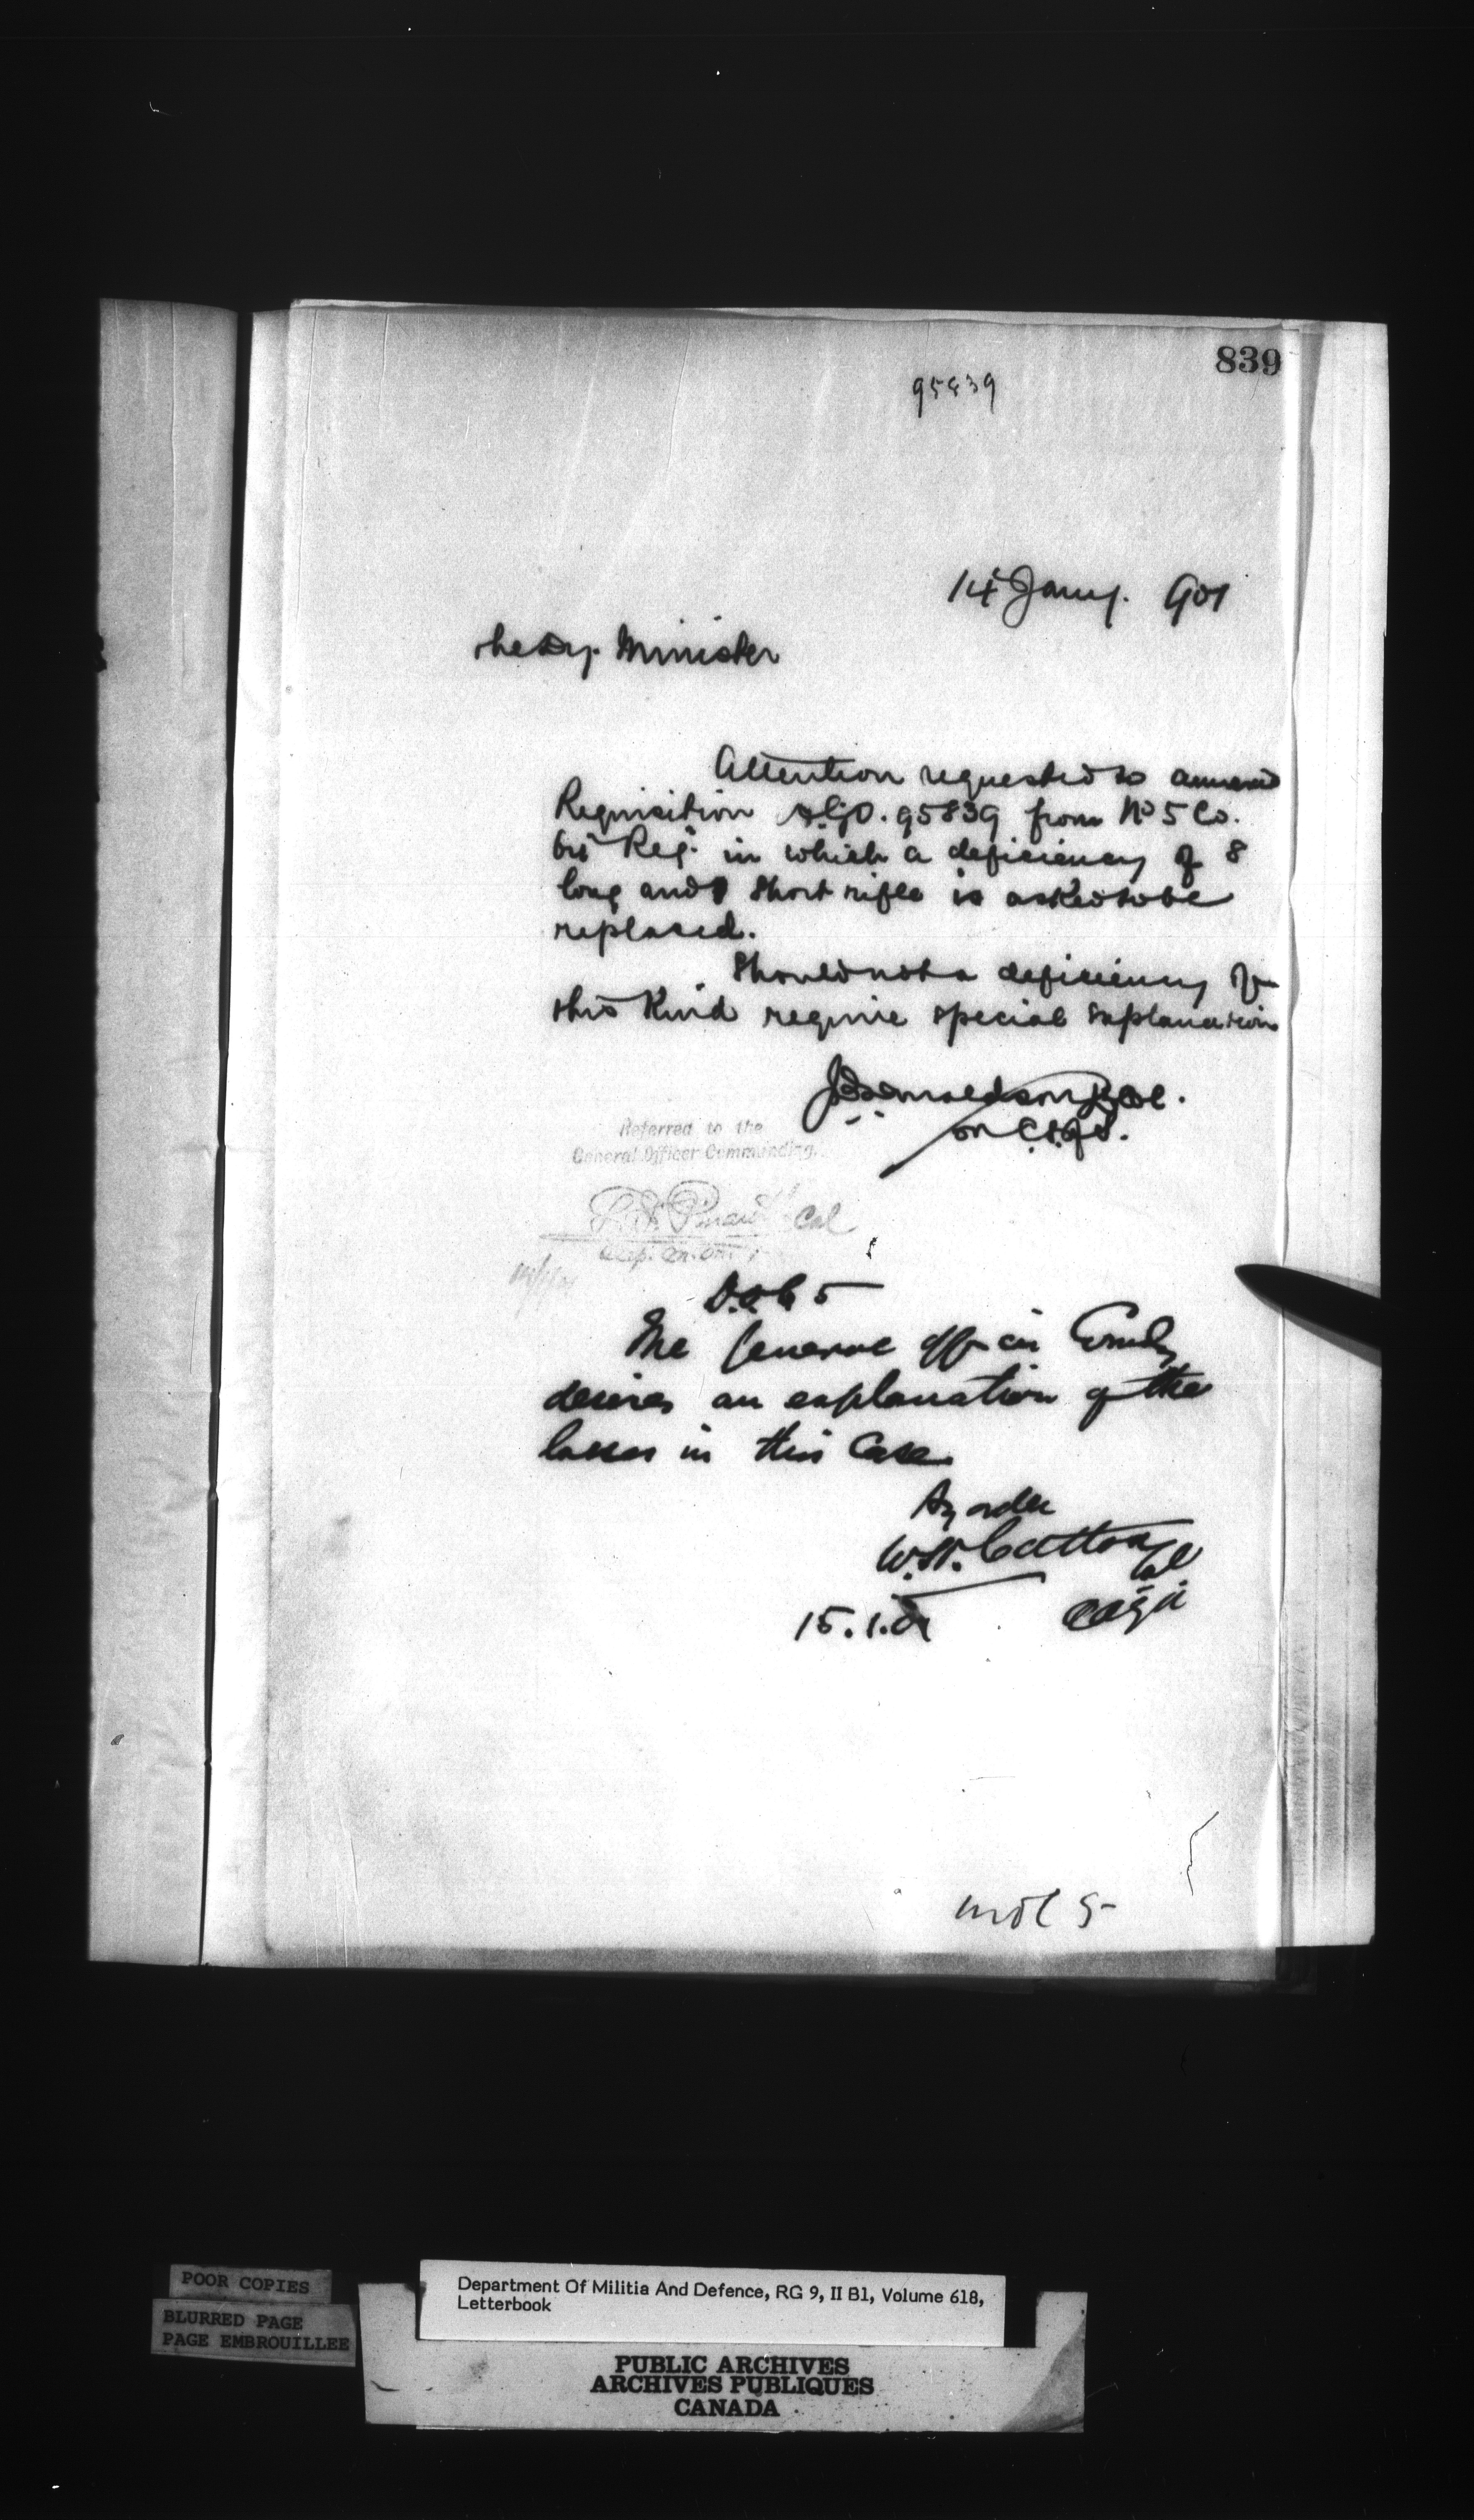 839
95839
14 Jany. 901
The Dy. Minister
Attention requested to annexed
Requisition 95839 from No 5 Co.
Reg. in which a deficiency of 8
long and short rifle is asked to be
replaced.
Should not a deficiency of
this Kind require special explanation
Referred to the
General Officer Commanding.
Col
D.O.C 5
The General officer Comdg
desires an explanation of the
losses in this Case
By order
15.1.01
POOR COPIES
BLURRED PAGE
PAGE EMBROUILLEE
Department Of Militia And Defence, RG 9, II B1, Volume 618,
Letterbook
PUBLIC ARCHIVES
ARCHIVES PUBLIQUES
CANADA